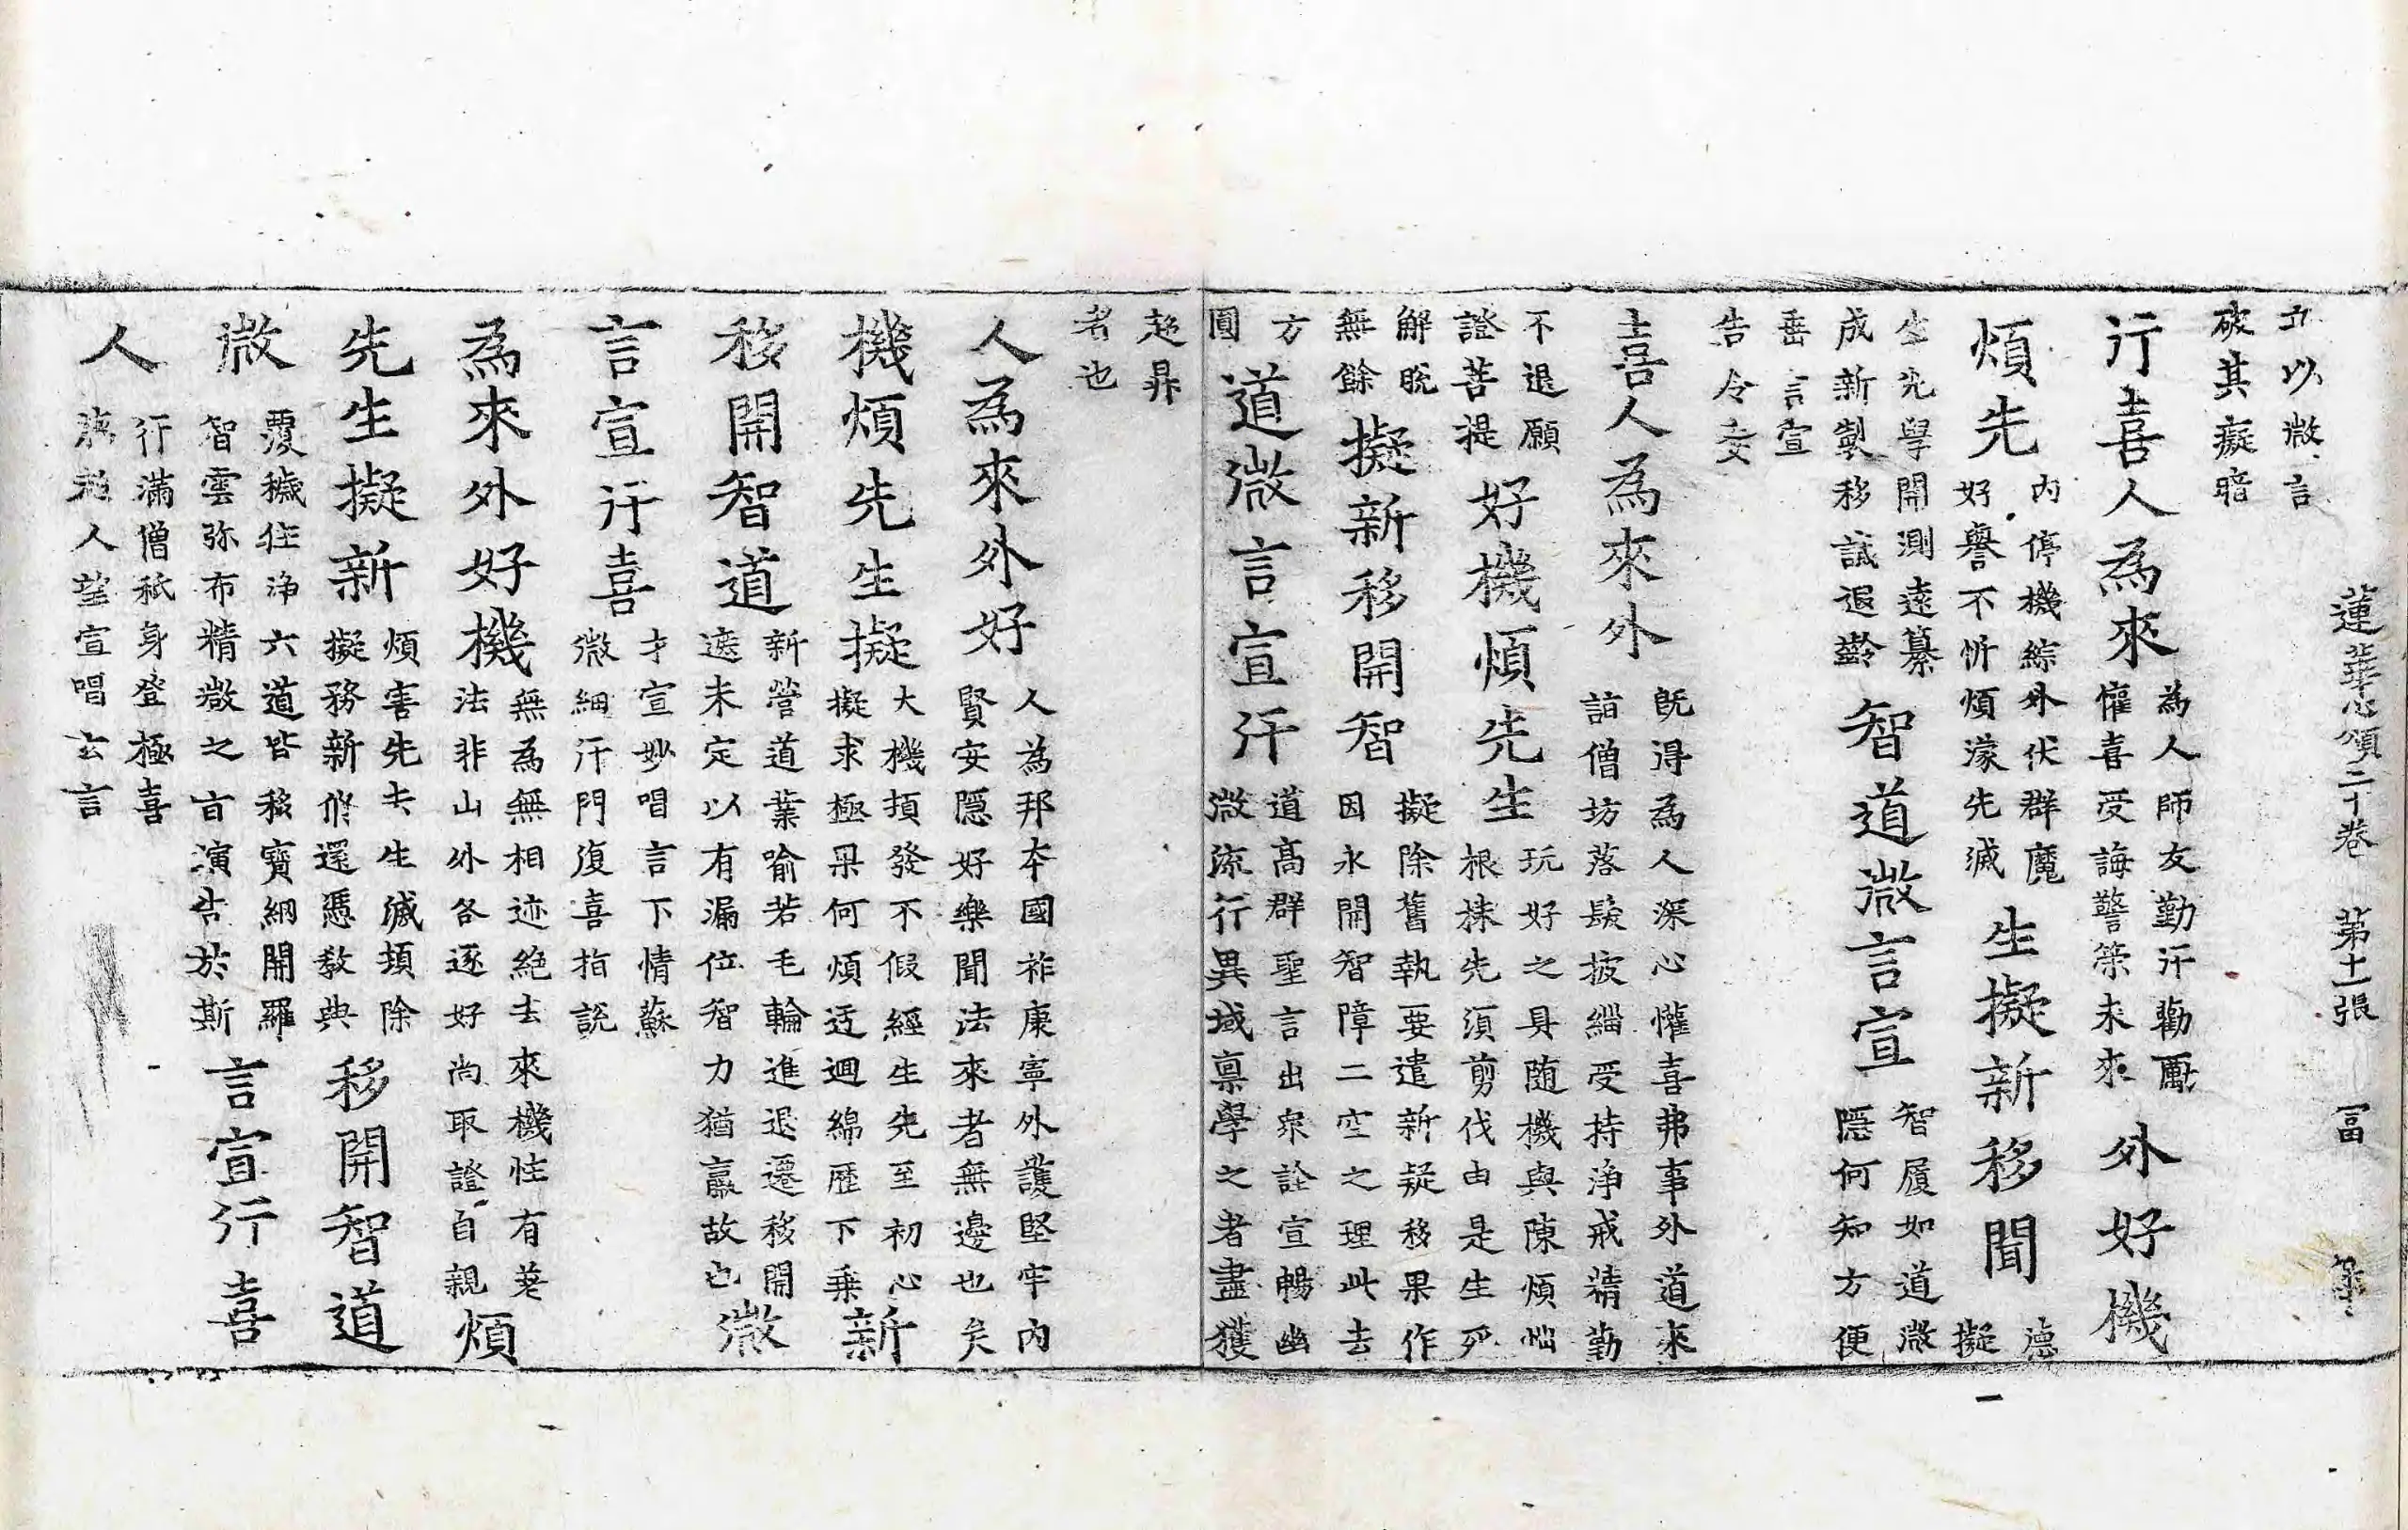 蓮華心頌二十卷 第十一張 冨
立以微言
破其癡暗
行喜人為來
為人師友勤行勸勵
懽喜受誨警策未來
外好機
煩先
內停機綜外伏群魔
好譽不忻煩濛先滅
生擬新移開
德
擬
生先學開測遠纂
成新製移誡遐齡
智道微言宣
智履如道微
隱何知方便
垂言宣
告令交
喜人為來外
既得為人深心懽喜弗事外道來
詣僧坊落髮披緇受持淨戒精勤
不退願
證菩提
好機煩先生
玩好之具随機與陳煩惱
根株先湏剪伐由是生死
解脫
無餘
擬新移開智
擬除舊執要遣新疑移果作
因永開智障二空之理此去
方
圓
道微言宣行
道高群聖言出眾詮宣暢幽
微流行異域禀學之者盡獲
超昇
者也
人為來外好
人為邦本國祚康寧外護堅牢內
賢安隱好樂聞法來者無邊也矣
機煩先生擬
大機頓發不假經生先至初心
擬求極果何煩迂迴綿歷下乗
新
移開智道
新營道業喻若毛輪進退遷移開
遮未定以有漏位智力猶羸故也
微
言宣行喜
才宣妙唱言下情蘇
微細行門復喜指說
為來外好機
無為無相迹絕去來機性有差
法非山外各逐好尚取證自親
煩
先生擬新
煩害先去生滅頓除
擬務新修還憑教典
移開智道
微
覆穢往淨六道皆移寶網開羅
智雲弥布精微之旨演告於斯
言宣行喜
人
行滿僧祇身登極喜
超人望宣唱玄言